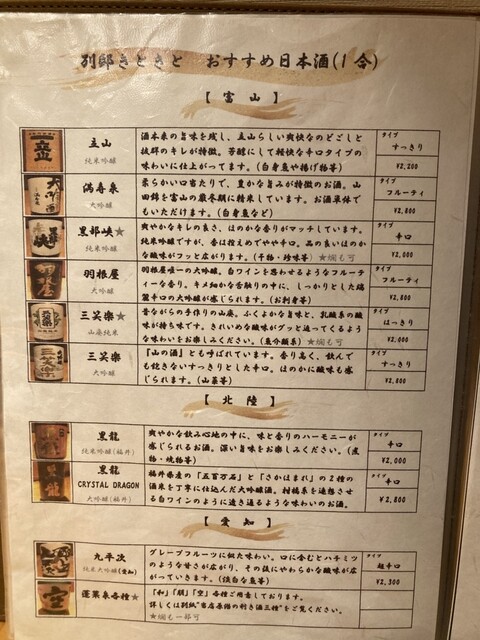 別邸きときと おすすめ日本酒(1合)
【 富山 】
立山
純米吟醸
酒本来の旨味を残し、立山らしい爽快なのどごしと
抜群のキレが特徴。芳醇にして軽快な辛口タイプの
味わいに仕上がってます。(白身魚や揚げ物等)
タイプ
すっきり
¥2,200
満寿泉
大吟醸
柔らかい口当たりで、豊かな旨みが特徴のお酒。山
田錦を富山の厳冬期に精米しています。お酒単体で
もいただけます。(白身魚など)
タイプ
フルーティ
¥2,800
黒部峡★
純米吟醸
爽やかなキレの良さ、ほのかな香りがマッチしています。
純米吟醸ですが、香は控えめでやや辛口。品の良いほのか
な酸味がフッと広がります。(干物・珍味等) ★燗も可
タイプ
辛口
¥2,000
羽根屋
大吟醸
羽根屋唯一の大吟醸。白ワインを思わせるようなフルーテ
ィーな香り。キメ細かな舌触りの中に、しっかりとした端
麗辛口の大吟醸が感じられます。(お刺身等)
タイプ
フルーティ
¥2,800
三笑楽★
山廃純米
昔ながらの手作りの山廃。ふくよかな旨味と、乳酸系の酸
味が持ち味です。きれいめな酸味がグッと迫ってくるよう
な味わいをお楽しみください。(魚介類系) ★燗も可
タイプ
はっきり
¥2,000
三笑楽
大吟醸
「山の酒」とも呼ばれています。香り高く、飲んで
も飽きないすっきりとした辛口。ほのかに酸味も感
じられます。(山菜等)
タイプ
すっきり
¥2,800
【 北陸 】
黒龍
純米吟醸(福井)
爽やかな飲み心地の中に、味と香りのハーモニーが
感じられるお酒。深い旨味をお楽しみください。(煮
物・焼物等)
タイプ
辛口
¥2,000
黒龍
CRYSTAL DRAGON
大吟醸(福井)
福井県産の「五百万石」と「さかほまれ」の2種の
酒米を丁寧に仕込んだ大吟醸酒。柑橘系を連想させ
る白ワインのように透き通るような味わいのお酒。
タイプ
辛口
¥2,800
【 愛知 】
九平次
純米大吟醸(愛知)
グレープフルーツに似た味わい。口に含むとハチミツ
のような甘さが広がり、その後にやわらかな酸味が広
がっていきます。(淡白な魚等)
タイプ
超辛口
¥2,300
蓬莱泉各種★
「和」「朋」「空」各種ご用意しております。
詳しくは別紙"当店原価の利き酒三種"をご覧ください。
★燗も一部可